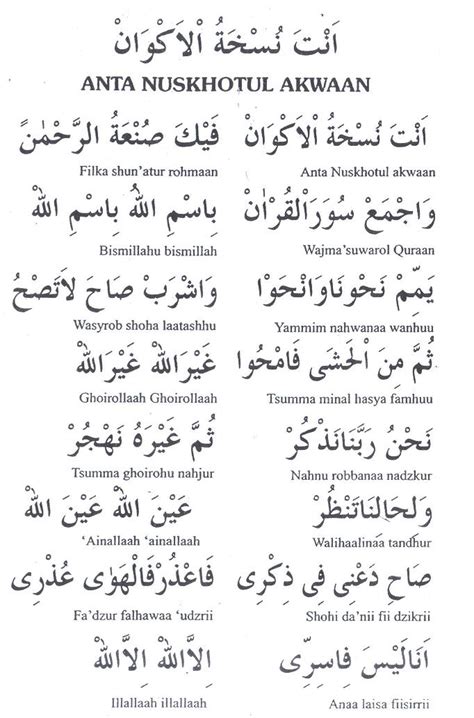 اَنْتَ نُسْخَةُ الْاَكْوَانْ
ANTA NUSKHOTUL AKWAAN
اَنْتَ نُسْخَةُ الْاَكْوَانْ فَيْكَ صُنْعَةُ الرَّحْمٰنْ
Anta Nuskhotul akwaan Filka shun'atur rohmaan
وَاجْمَعْ سُوَرَالْقُرْاٰنْ بِاسْمِ اللهُ بِاسْمِ الله
Wajma'suwarol Quraan Bismillahu bismillah
يَمِّمْ نَحْوَنَاوَانْحَوْا وَاشْرَبْ صَاحَ لَاتَصْحُ
Yammim nahwanaa wanhuu Wasyrob shoha laatashhu
ثُمَّ مِنَ الْحَشَى فَامْحُوا غَيْرَالله غَيْرَالله
Tsumma minal hasya famhuu Ghoirollaah Ghoirollaah
نَحْنُ رَبَّنَانَذْكُرْ ثُمَّ غَيْرَهُ نَهْجُرْ
Nahnu robbanaa nadzkur Tsumma ghoirohu nahjur
وَلِحَالِنَاتَنْظُرْ عَيْنَ الله عَيْنَ الله
Walihaalinaa tandhur 'Ainallaah 'ainallaah
صَاحِ دَعْنِى فِى ذِكْرِى فَاعْذُرْفَالْهَوٰى عُذْرِى
Shohi da'nii fii dzikrii Fa'dzur falhawaa 'udzrii
اَنَالَيْسَ فِاسِرِّى اِلَّاالله اِلَّاالله
Anaa laisa fiisirrii Illallaah illallaah